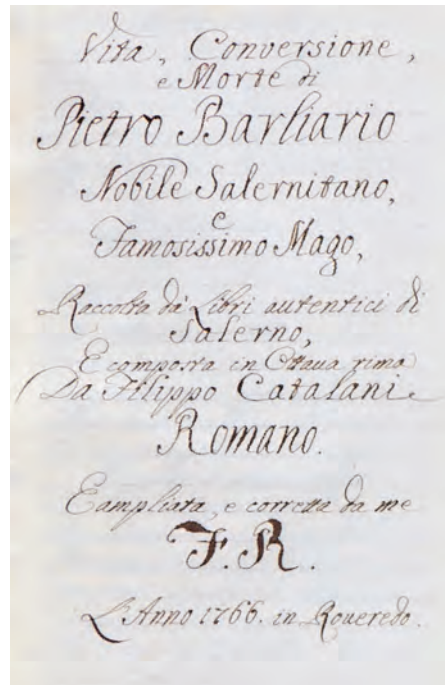 Vita, Conversione,
e Morte di
Pietro Barliario
Nobile Salernitano,
e
Famosissimo Mago,
Raccolta da' Libri autentici di
Salerno,
E composta in Ottava rima
Da Filippo Catalani
Romano.
E ampliata, e corretta da me
F. R.
L'Anno 1766. in Roveredo.